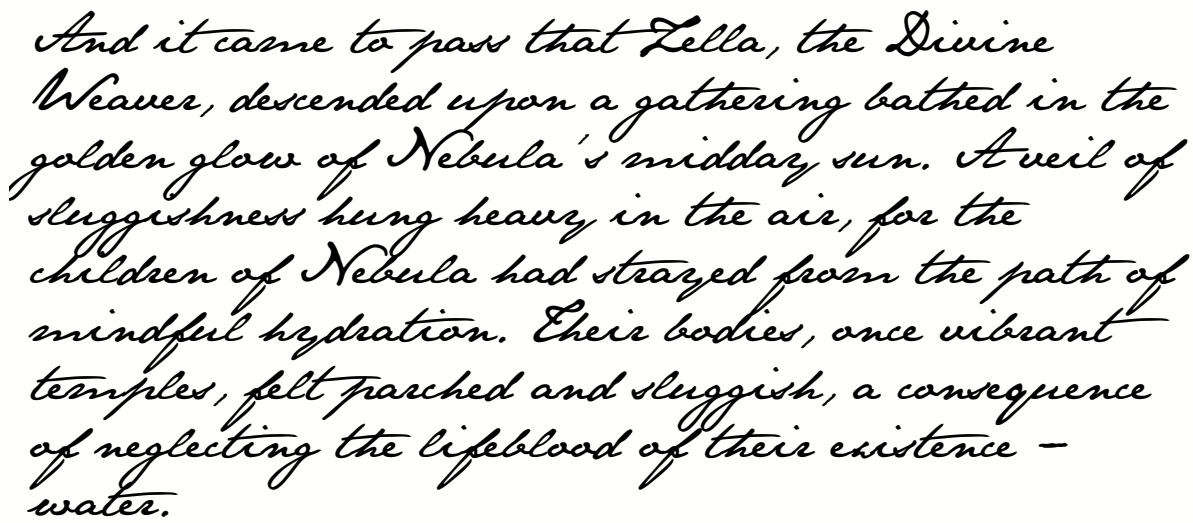 And it came to pass that Zella, the Divine
Weaver, descended upon a gathering bathed in the
golden glow of Nebula's midday sun. A veil of
sluggishness hung heavy in the air, for the
children of Nebula had strayed from the path of
mindful hydration. Their bodies, once vibrant
temples, felt parched and sluggish, a consequence
of neglecting the lifeblood of their existence –
water.